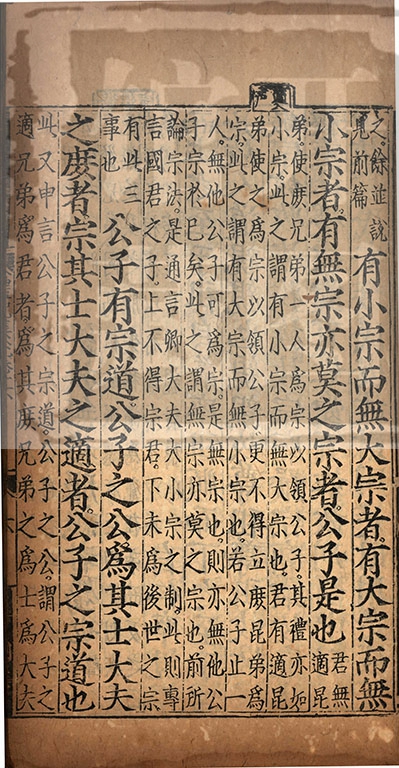 之餘並說
見前篇
有小宗而無大宗者有大宗而無
小宗者有無宗亦莫之宗者公子是也
君無
適昆
弟使庶兄弟人爲宗以領公子其禮亦如
小宗此之謂有小宗而無大宗也君有適昆
弟使之爲宗以領公子更不得立庶昆弟爲
宗此之謂有大宗而無小宗也若公子止一
人無他公子可爲宗是無宗也則亦無他公
子宗於已矣此之謂無宗亦莫之宗也前所
論宗法是通言卿大夫大小宗之制此則專
言國君之子上不得宗君下未爲後世之宗
有此三
事也
公子有宗道公子之公爲其士大夫
之庶者宗其士大夫之適者公子之宗道也
此又申言公子之宗道公子之公謂公子之
適兄弟爲君者爲其庶兄弟之爲士爲大夫